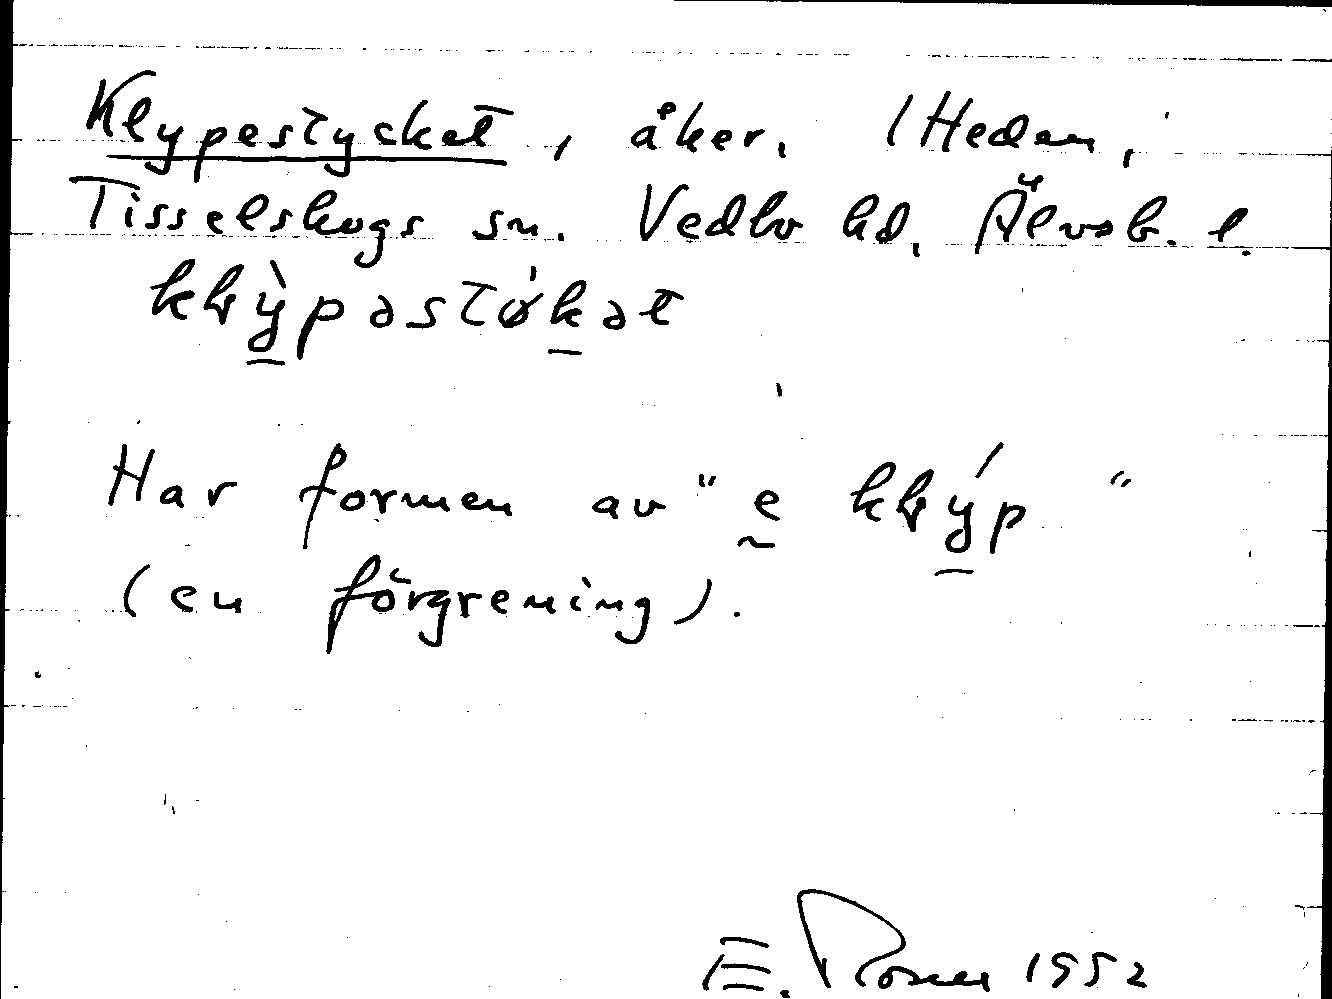 Klypestycket, åker. 1 Heden,
Tisselskogs sn. Vedbo hd. Älvsb. l.
klẁ̲ypəstø̍k̲ət
Har formen av "ḛ klý̲p"
(en förgrening).
E. Rosell 1952